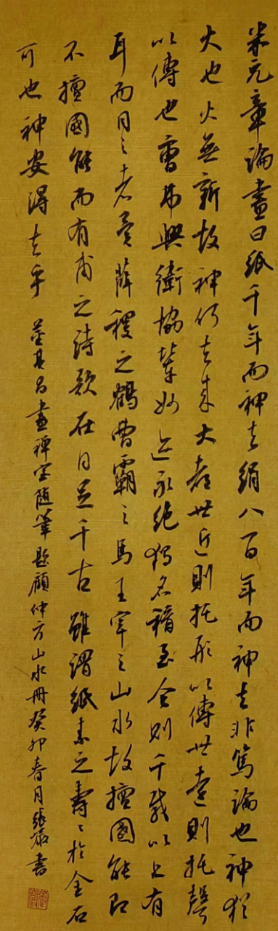 米元章論畫曰紙千年而神去絹八百年而神去非篤論也神猶
火也火無新故神何去來大都世近則托形以傳世遠則托聲
以傳也曹弗興衛協輩妙迹永絕獨名稱至今則千載以上有
耳而目之者矣薛稷之鶴曹霸之馬王宰之山水故擅國能即
不擅國能而有甫之詩歌在自足千古雖謂紙素之壽壽於金石
可也神安得去乎 董其昌畫禪室隨筆題顧仲方山水冊癸卯春月張書